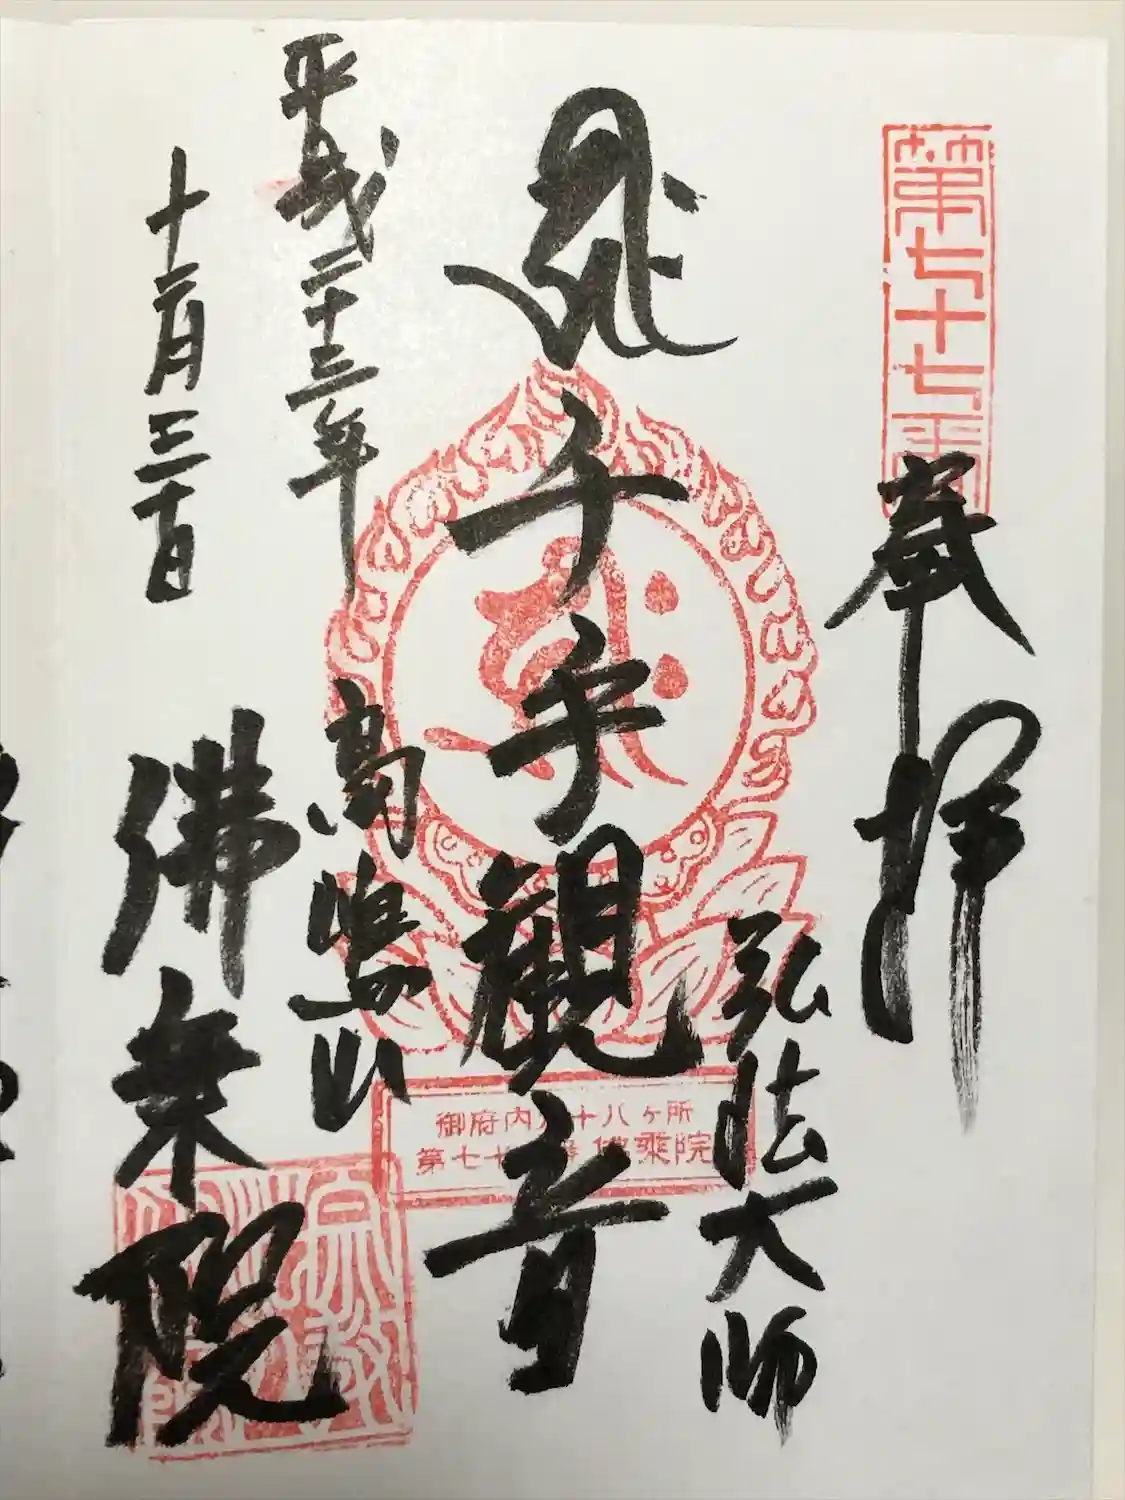 第七十七番
奉拝
弘法大師
千手観音
御府内八十八ヶ所
第七十七番 佛乗院
平成二十三年
十二月三十日
高嶋山
佛乗院